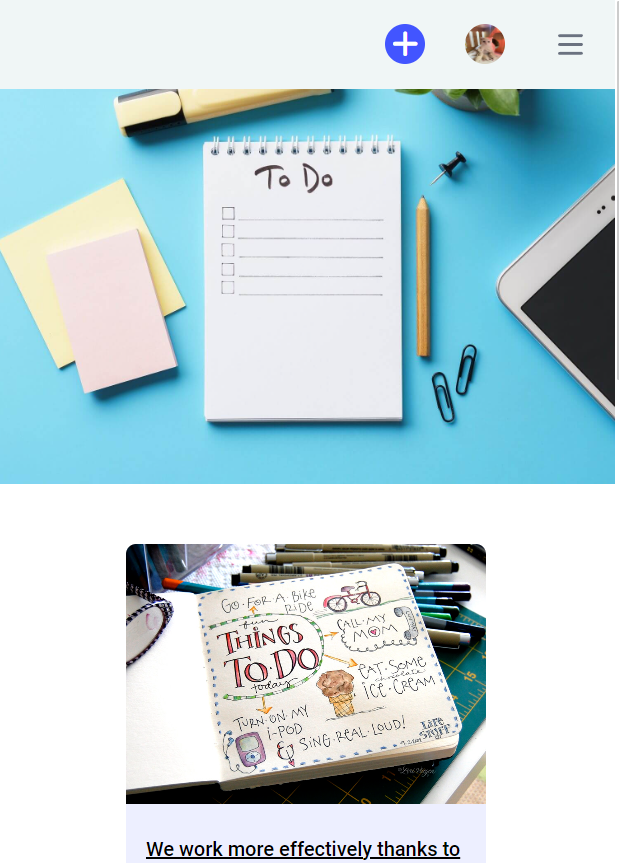 To Do
GO·FOR·A·BIKE
RIDE
fun
THINGS
TO·DO
today
CALL·MY
MOM
EAT·SOME
chocolate
ICE·CREAM
TURN·ON·MY
i-POD
& SING·REAL·LOUD!
We work more effectively thanks to